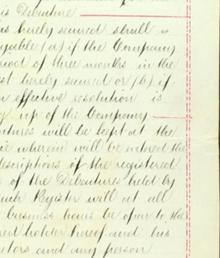 is Debenture
is hereby secured shall
payable (a) if the Company
period of three months in the
st hereby secured or (b) if
an effective resolution is
up of the Company
tures will be kept at the
ce wherein will be entered the
descriptions of the registered
s of the Debentures held by
such Register will at all
business hours be open to the
ered holder hereof and his
utors and any person